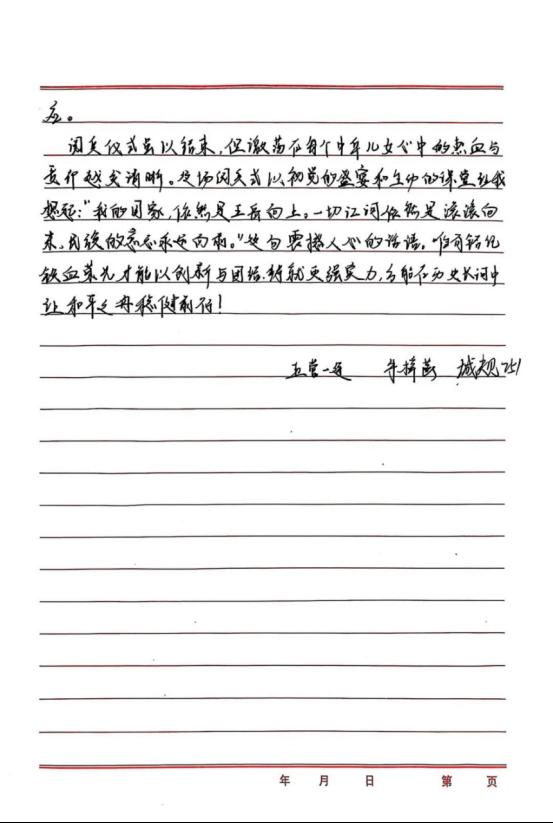 应。
阅兵仪式虽以结束，但激荡在每个中华儿女心中的热血与
责任越发清晰。这场阅兵式以视觉的盛宴和生动的课堂让我
想起：“我的国家，依然是五岳向上。一切江河依然是滚滚向
东，民族的意志永远向前。”这句震撼人心的话语。唯有铭记
铁血荣光才能以创新与团结，铸就更强实力，方能在历史长河中
让和平之舟稳健前行！
五营一连 城规251
年 月 日 第 页